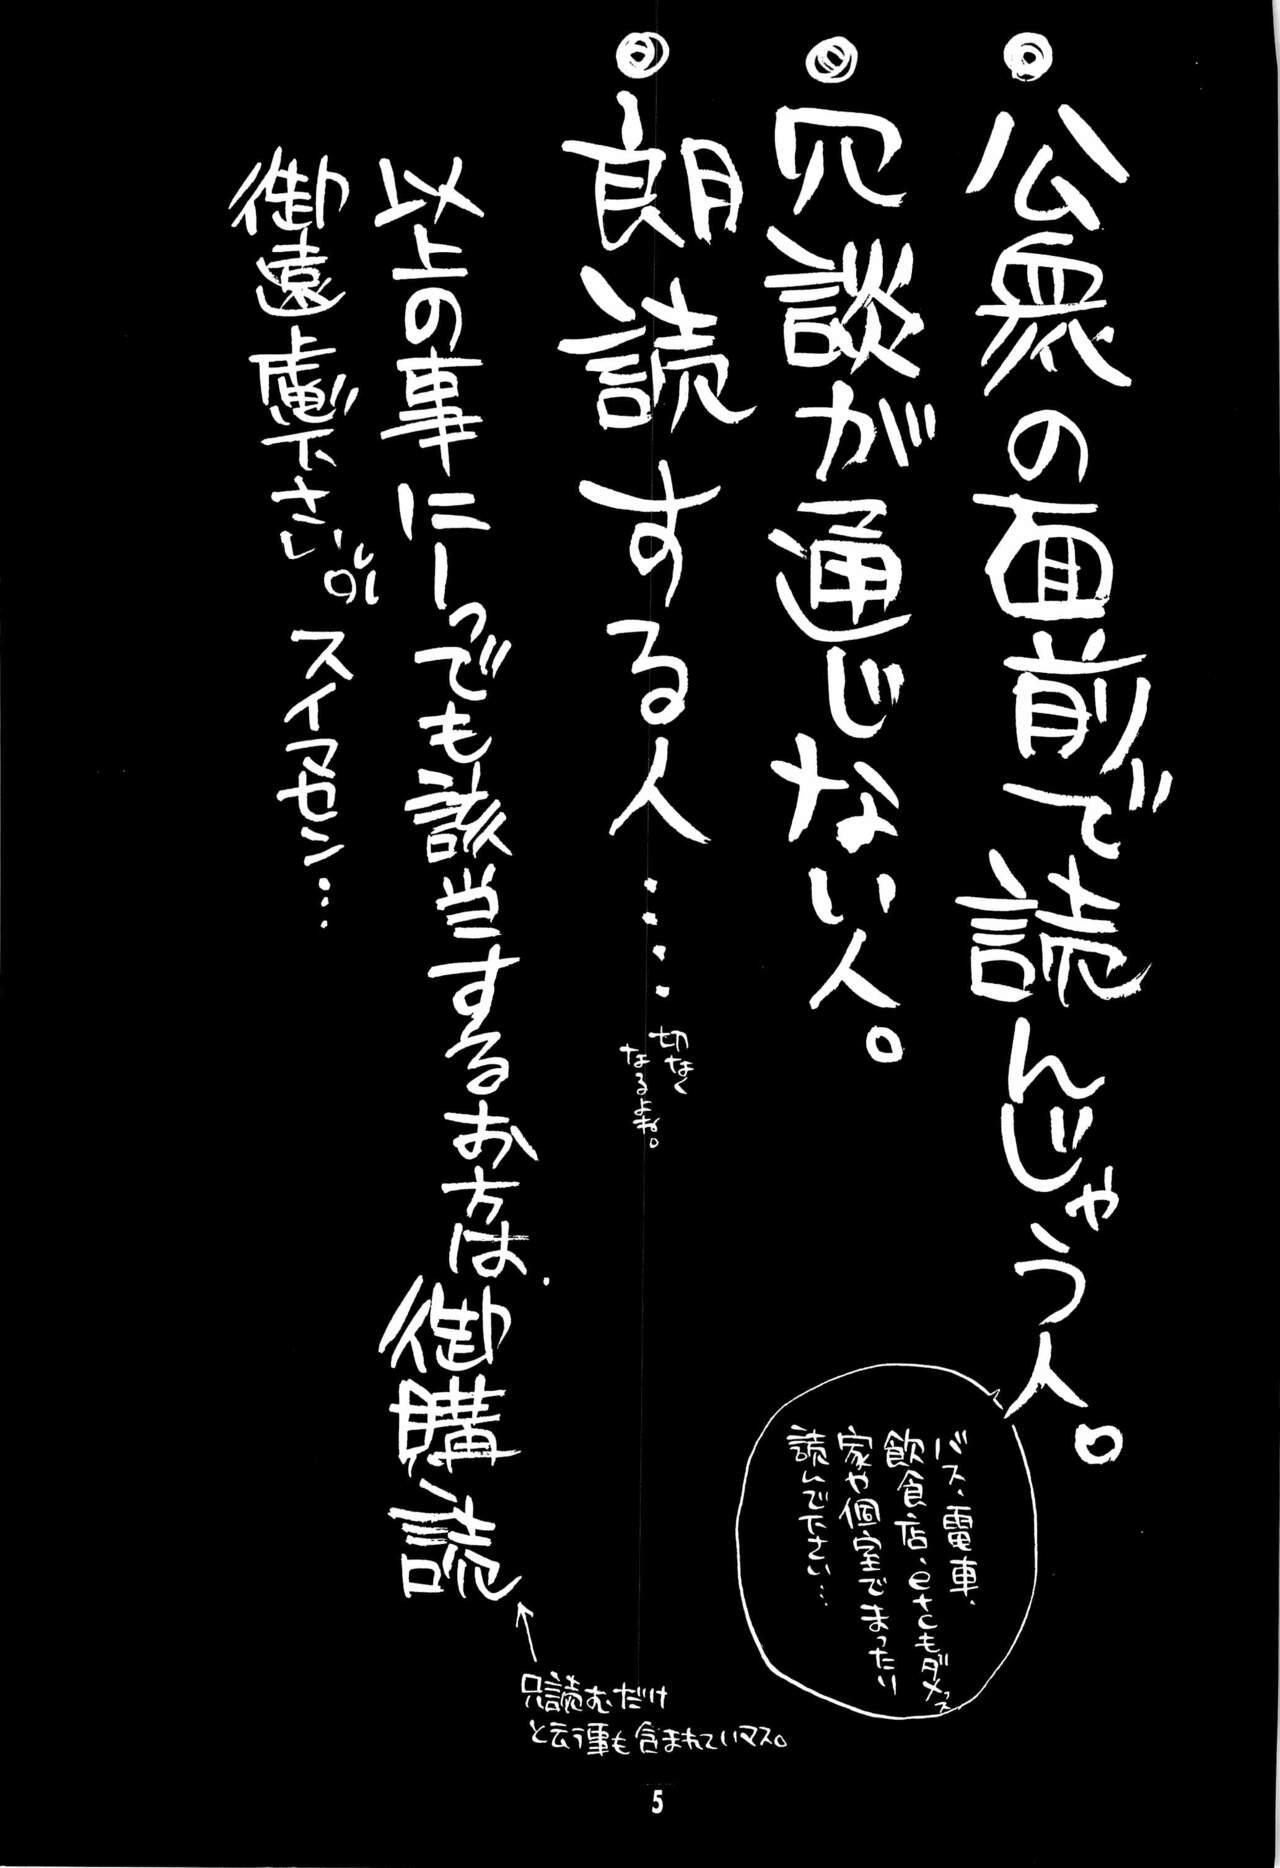 ◎公衆の面前で読んじゃう人。
バス、電車、
飲食店、etcもダメっス
家や個室でまったり
読んで下さい…
◎冗談が通じない人。
◎朗読する人……
切なく
なるよね。
以上の事に一っでも該当するお方は、御購読
御遠慮下さい。スイマセン…
只読むだけ
と云う事も含まれていマス。
5